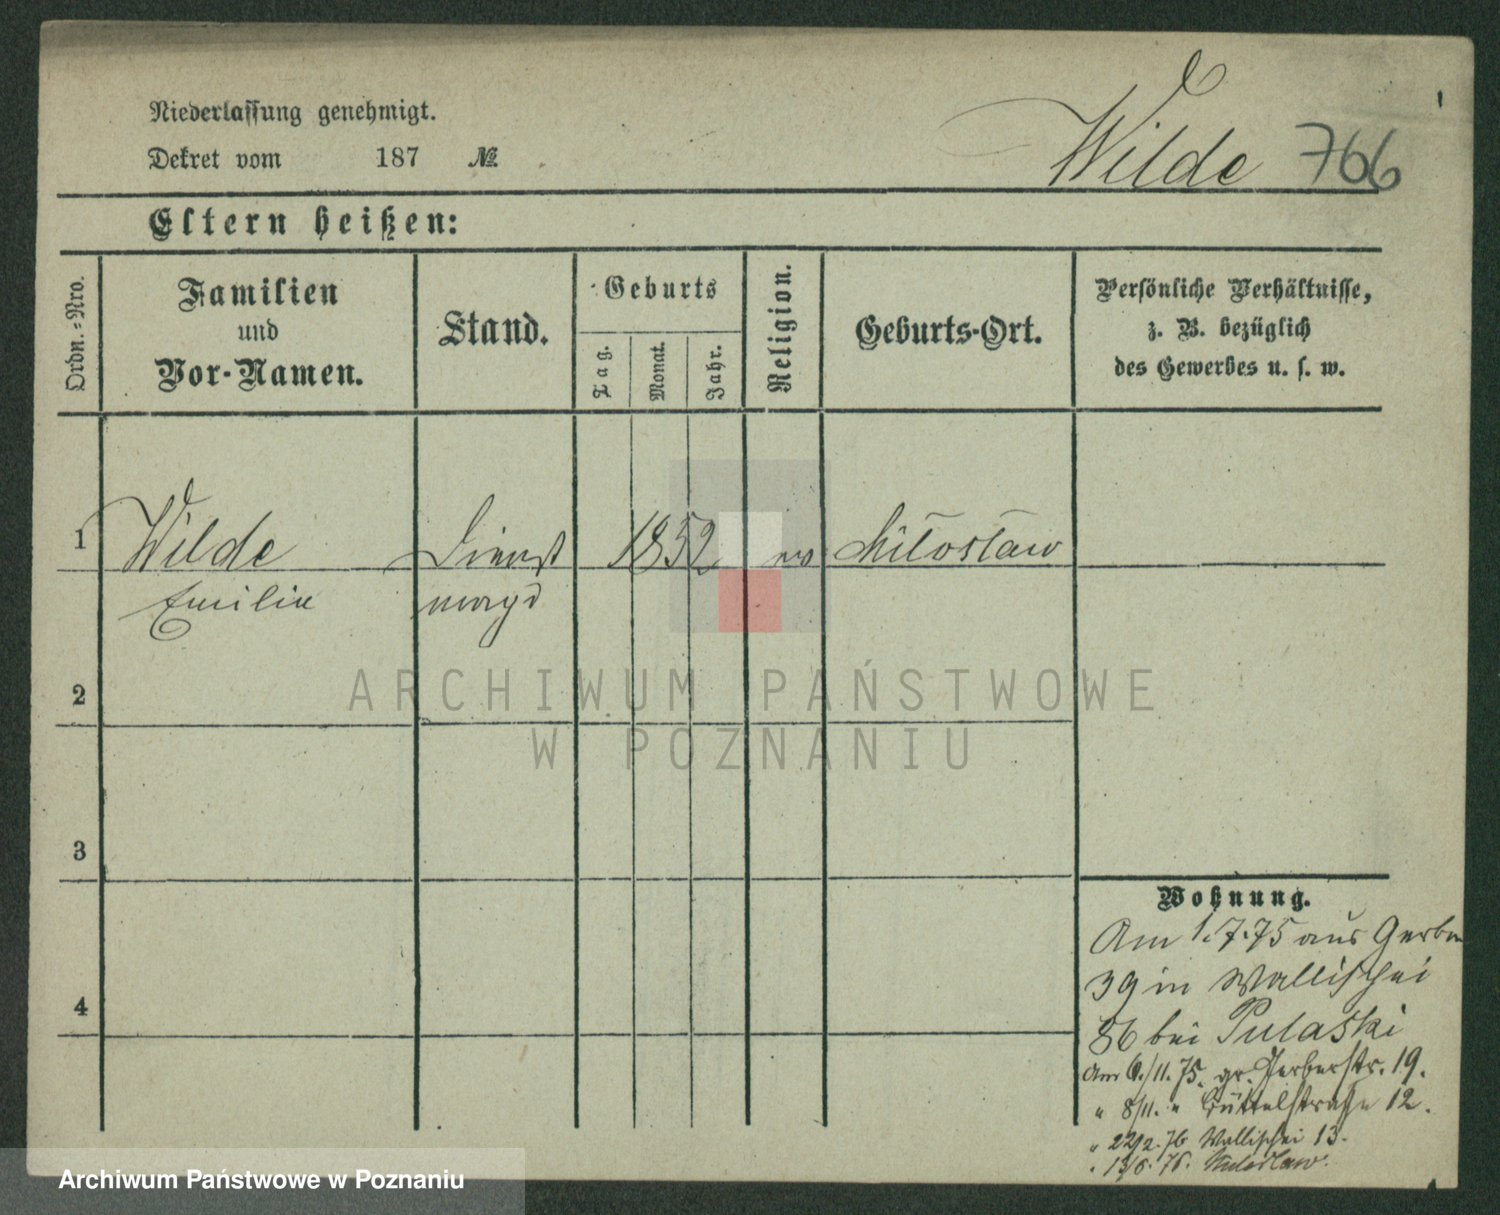 Niederlassung genehmigt.
Dekret vom 187 №
Wilde 766
Eltern heißen:
Ordn.-Nro.
Familien
und
Vor-Namen.
Stand.
Geburts
Tag.
Monat.
Jahr.
Religion.
Geburts-Ort.
Persönliche Verhältnisse,
z. B. bezüglich
des Gewerbes u. s. w.
1 Wilde Dienst 1852 Miłosław
Emilie magd
2
ARCHIWUM PAŃSTWOWE
W POZNANIU
3
4
Wohnung.
Am 1.7.75 aus Gerber
39 in Wallischei
86 bei Pulaski
Am 6./11. 75. gr. Gerberstr. 19.
" 8/11. " Büttelstraße 12.
" 22/2. 76 Wallischei 13.
Archiwum Państwowe w Poznaniu